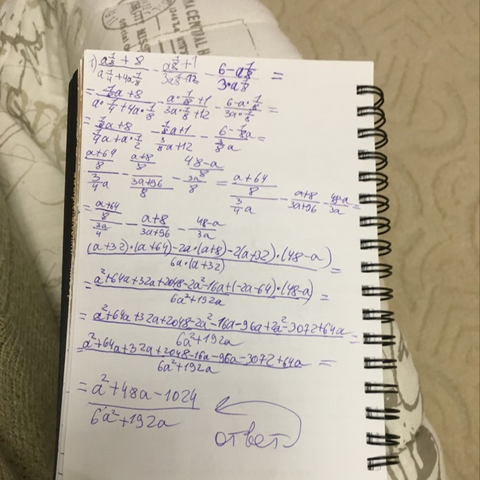 1) (a^(1/8) + 8)/(a^(1/4) + 4a^(1/8)) - (a^(1/8) + 1)/(3a^(1/8) + 12) - (6 - a^(1/8))/(3·a^(1/8)) =
= (1/8 a + 8)/(a·1/4 + 4a·1/8) - (a·1/8 + 1)/(3a·1/8 + 12) - (6 - a·1/8)/(3a·1/8) =
= (1/8 a + 8)/(1/4 a + a·1/2) - (1/8 a + 1)/(3/8 a + 12) - (6 - 1/8 a)/(3/8 a) =
((a+64)/8)/(3/4 a) - ((a+8)/8)/((3a+96)/8) - ((48-a)/8)/(3a/8) = ((a+64)/8)/(3/4 a) - (a+8)/(3a+96) - (48-a)/(3a) =
= ((a+64)/8)/(3a/4) - (a+8)/(3a+96) - (48-a)/(3a)
((a+32)·(a+64)-2a·(a+8)-2(a+32)·(48-a))/(6a·(a+32)) =
= (a²+64a+32a+2048-2a²-16a+(-2a-64)·(48-a))/(6a²+192a) =
= (a²+64a+32a+2048-2a²-16a-96a+2a²-3072+64a)/(6a²+192a) =
(a²+64a+32a+2048-16a-96a-3072+64a)/(6a²+192a) =
= (a²+48a-1024)/(6a²+192a)
ответ